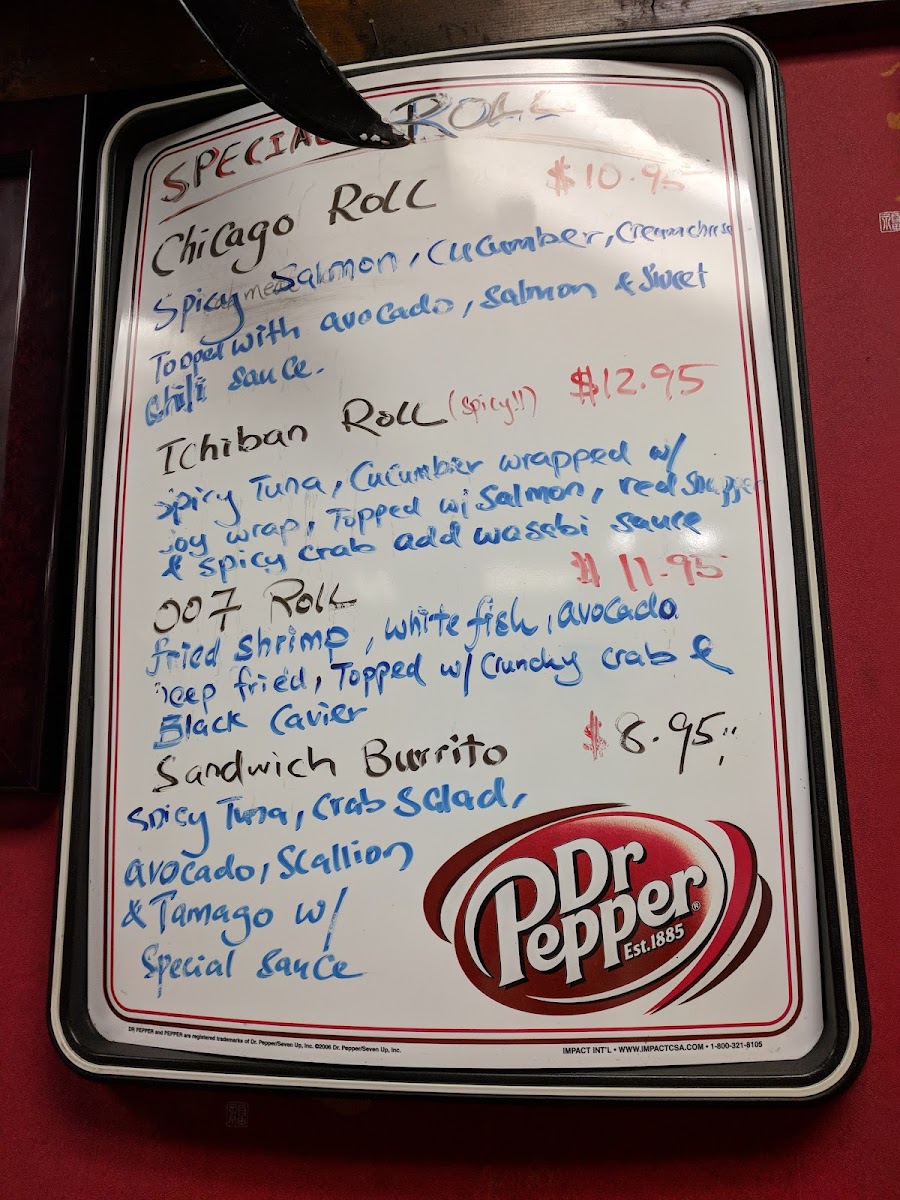 SPECIAL ROLL
Chicago Roll $10.95
Spicy Salmon, Cucumber, Creamcheese
Topped with avocado, salmon & Sweet
Chili sauce.
Ichiban Roll (spicy!!) $12.95
spicy Tuna, Cucumber wrapped w/
soy wrap, Topped w/ Salmon, red snapper
& spicy crab add wasabi sauce
007 Roll $11.95
fried shrimp, white fish, avocado
Deep fried, Topped w/ Crunchy crab &
Black Cavier
Sandwich Burrito $8.95
Spicy Tuna, Crab Salad,
avocado, Scallion
& Tamago w/
Special Sauce
Dr
Pepper®
Est.1885
DR PEPPER and PEPPER are registered trademarks of Dr. Pepper/Seven Up, Inc. ©2006 Dr. Pepper/Seven Up, Inc.
IMPACT INT'L • WWW.IMPACTCSA.COM • 1-800-321-8105